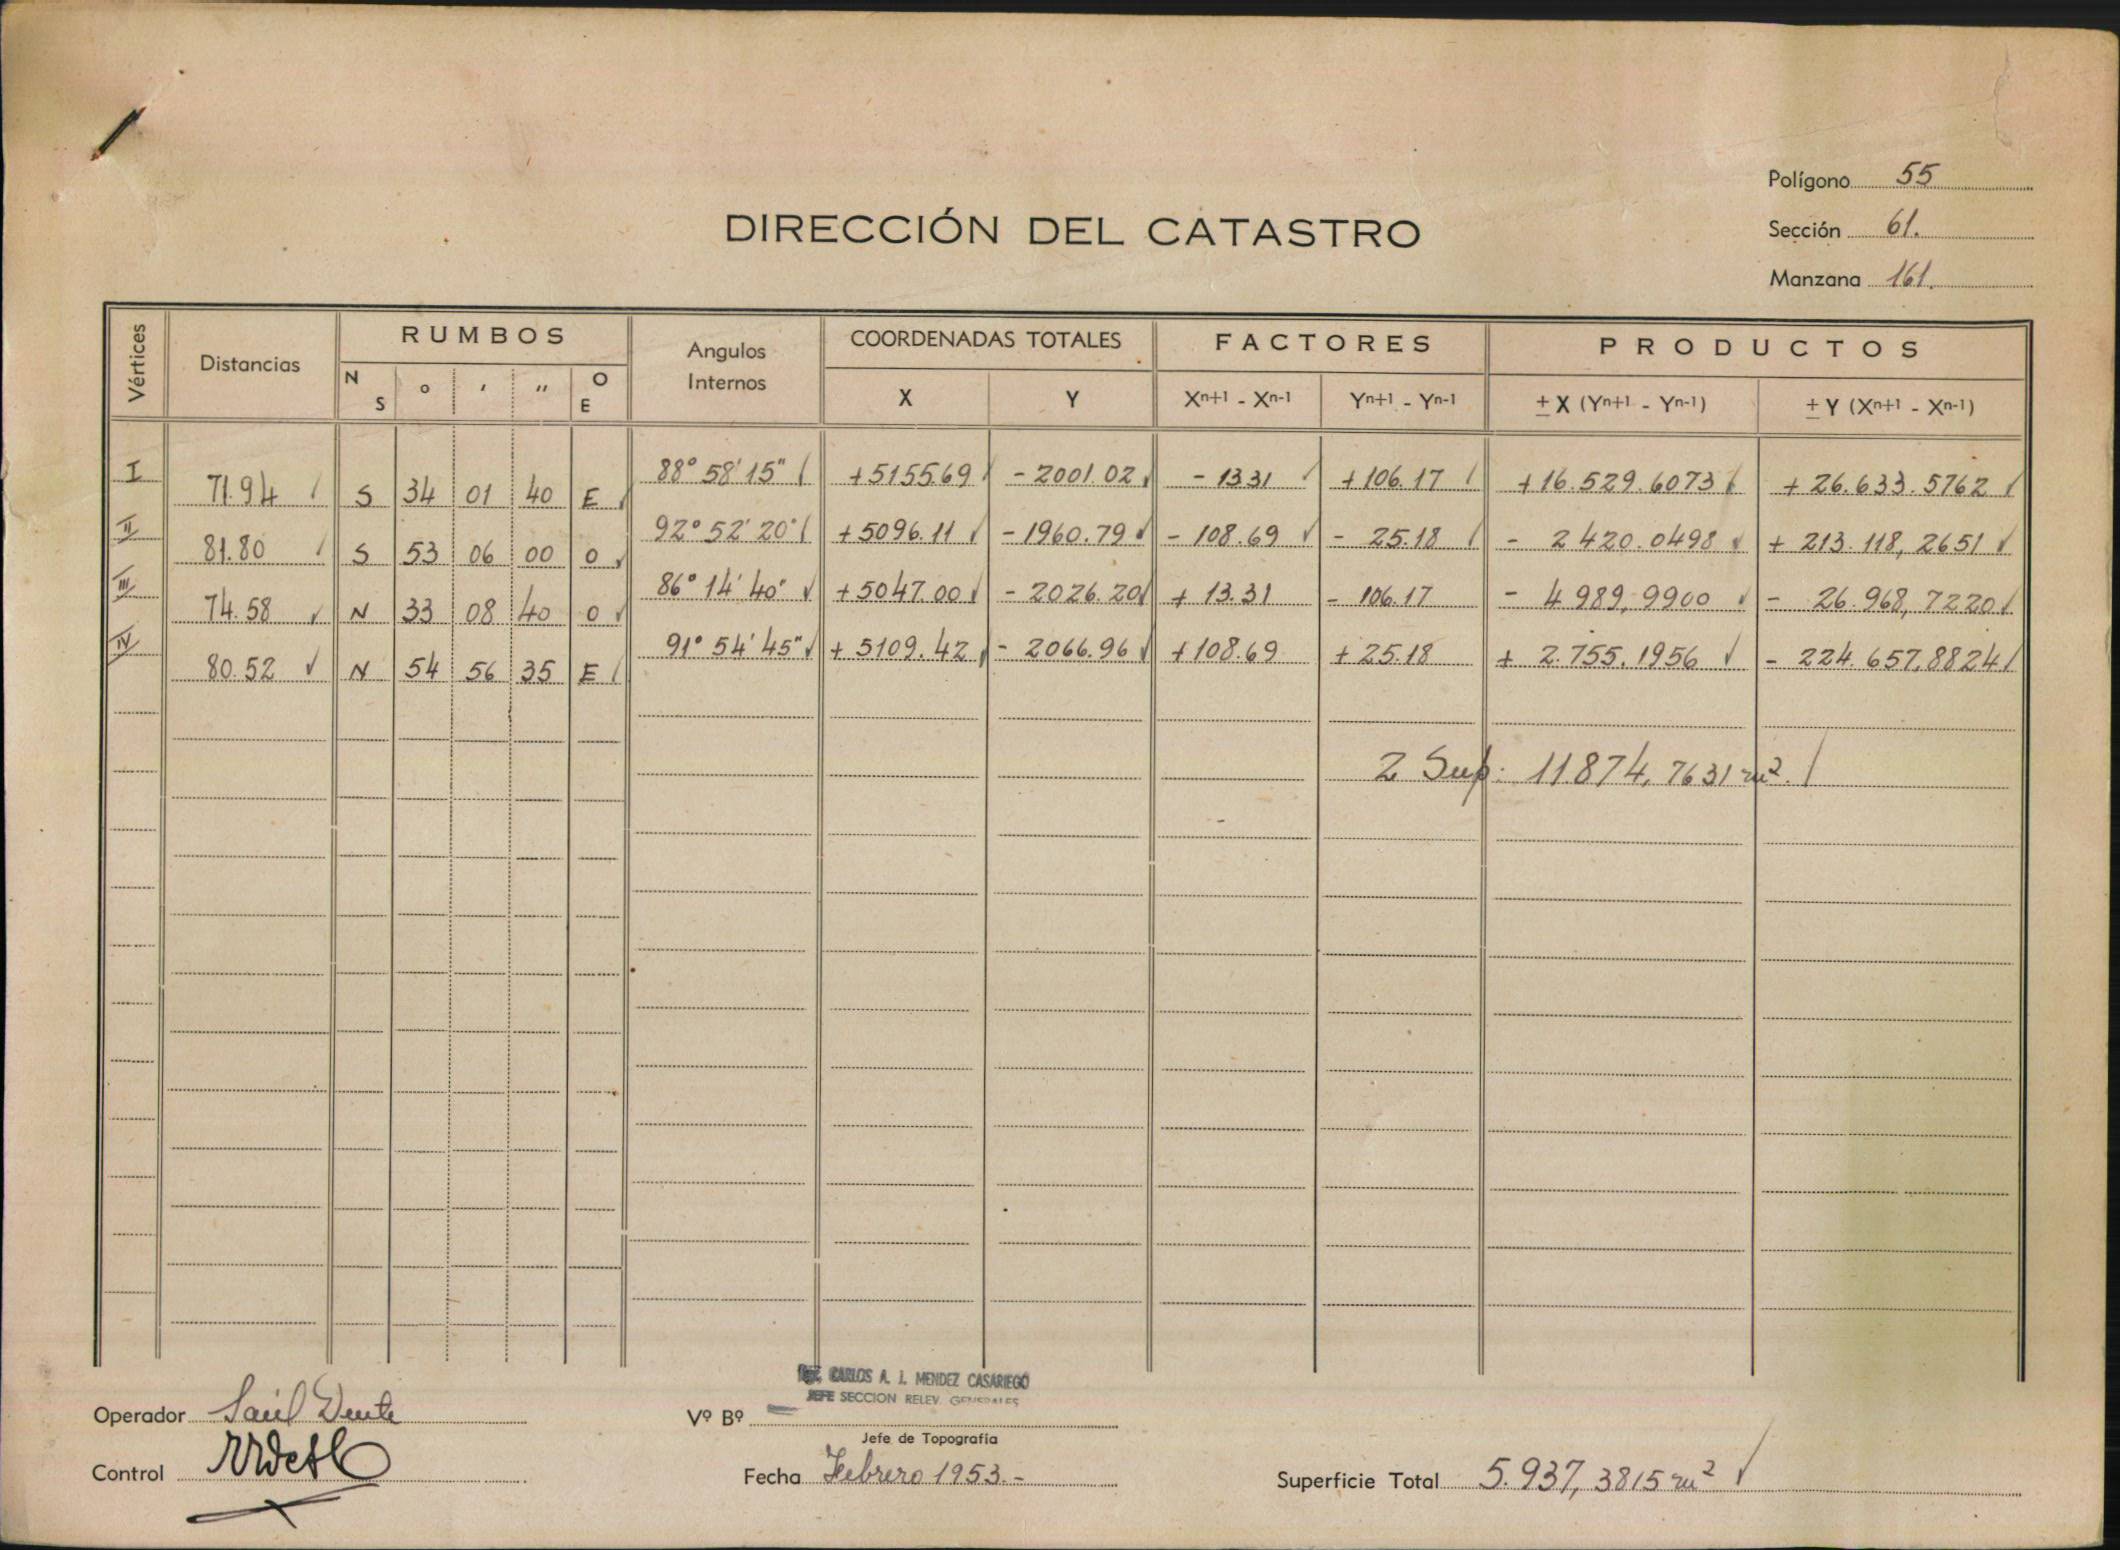 Polígono 55
DIRECCIÓN DEL CATASTRO
Sección 61.
Manzana 161.
Vértices Distancias RUMBOS Angulos Internos COORDENADAS TOTALES FACTORES PRODUCTOS
N S ° ' " O E X Y Xⁿ⁺¹ - Xⁿ⁻¹ Yⁿ⁺¹ - Yⁿ⁻¹ ± X (Yⁿ⁺¹ - Yⁿ⁻¹) ± Y (Xⁿ⁺¹ - Xⁿ⁻¹)
I 88° 58' 15" +5155.69 - 2001.02 - 13.31 +106.17 +16.529.6073 + 26.633.5762
71.94 S 34 01 40 E
II 92° 52' 20" +5096.11 - 1960.79 - 108.69 - 25.18 - 2420.0498 + 213.118,2651
81.80 S 53 06 00 O
III 86° 14' 40" +5047.00 - 2026.20 + 13.31 - 106.17 - 4989,9900 - 26.968,7220
74.58 N 33 08 40 O
IV 91° 54' 45" + 5109.42 - 2066.96 +108.69 + 25.18 + 2.755.1956 - 224.657,8824
80.52 N 54 56 35 E
2 Sup: 11874,7631 m²
CARLOS A. J. MENDEZ CASARIEGO
JEFE SECCION RELEV. GENERALES
Operador Saúl
Vº Bº
Jefe de Topografía
Control
Fecha Febrero 1953.-
Superficie Total 5.937,3815 m²